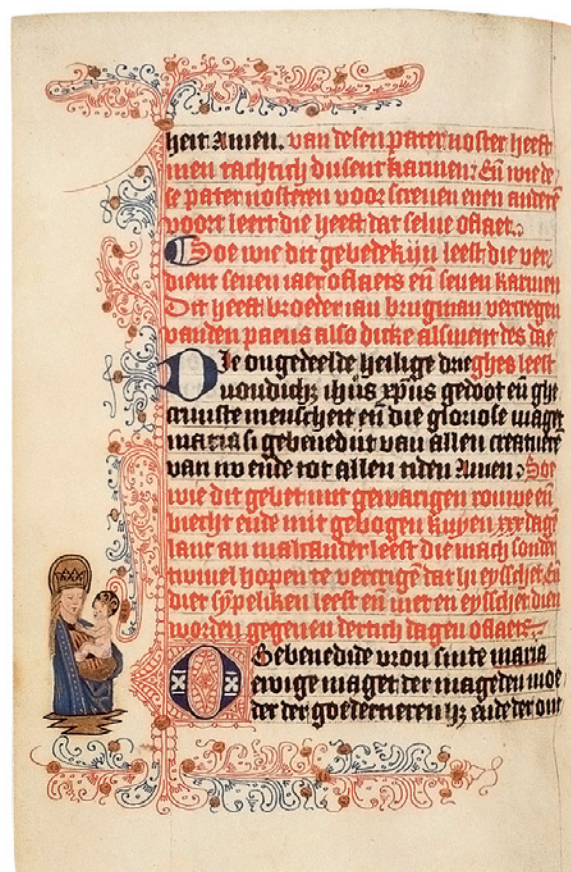 heit Amen. van desen pater noster heeft
men tachtich dusent karinen: Eñ wie de
se pater nosteren voor screuen enen anderẽ
voort leert die heeft dat selue oflaet.
Soe wie dit gebedekijn leest die ver
dient seuen iaer oflaets eñ seuen karinen
Dit heeft broeder ian brugman vercregen
vanden paeus also dicke alsment des dae
Die ongedeelde heilige drie ghes leest
uoudicheit ihũs xp̃us gedoot eñ ghe
cruuste menscheit eñ die gloriose maget
maria si gebenedijt van allen creaturẽ
van nv ende tot allen tiden Amen: Soe
wie dit gebet mit gewarigen rouwe eñ
biecht ende mit gebogen knyen xxx dagẽ
lanc an malcander leest die mach sonder
twiuel hopen te vercrigẽ dat hi eysschet. Eñ
diet sỹpeliken leest eñ niet en eysschet dien
worden gegeuen dertich dagen oflaets.
O Gebenedide vrou sinte maria
ewige maget der mageden moe
der der goedertieren ende der